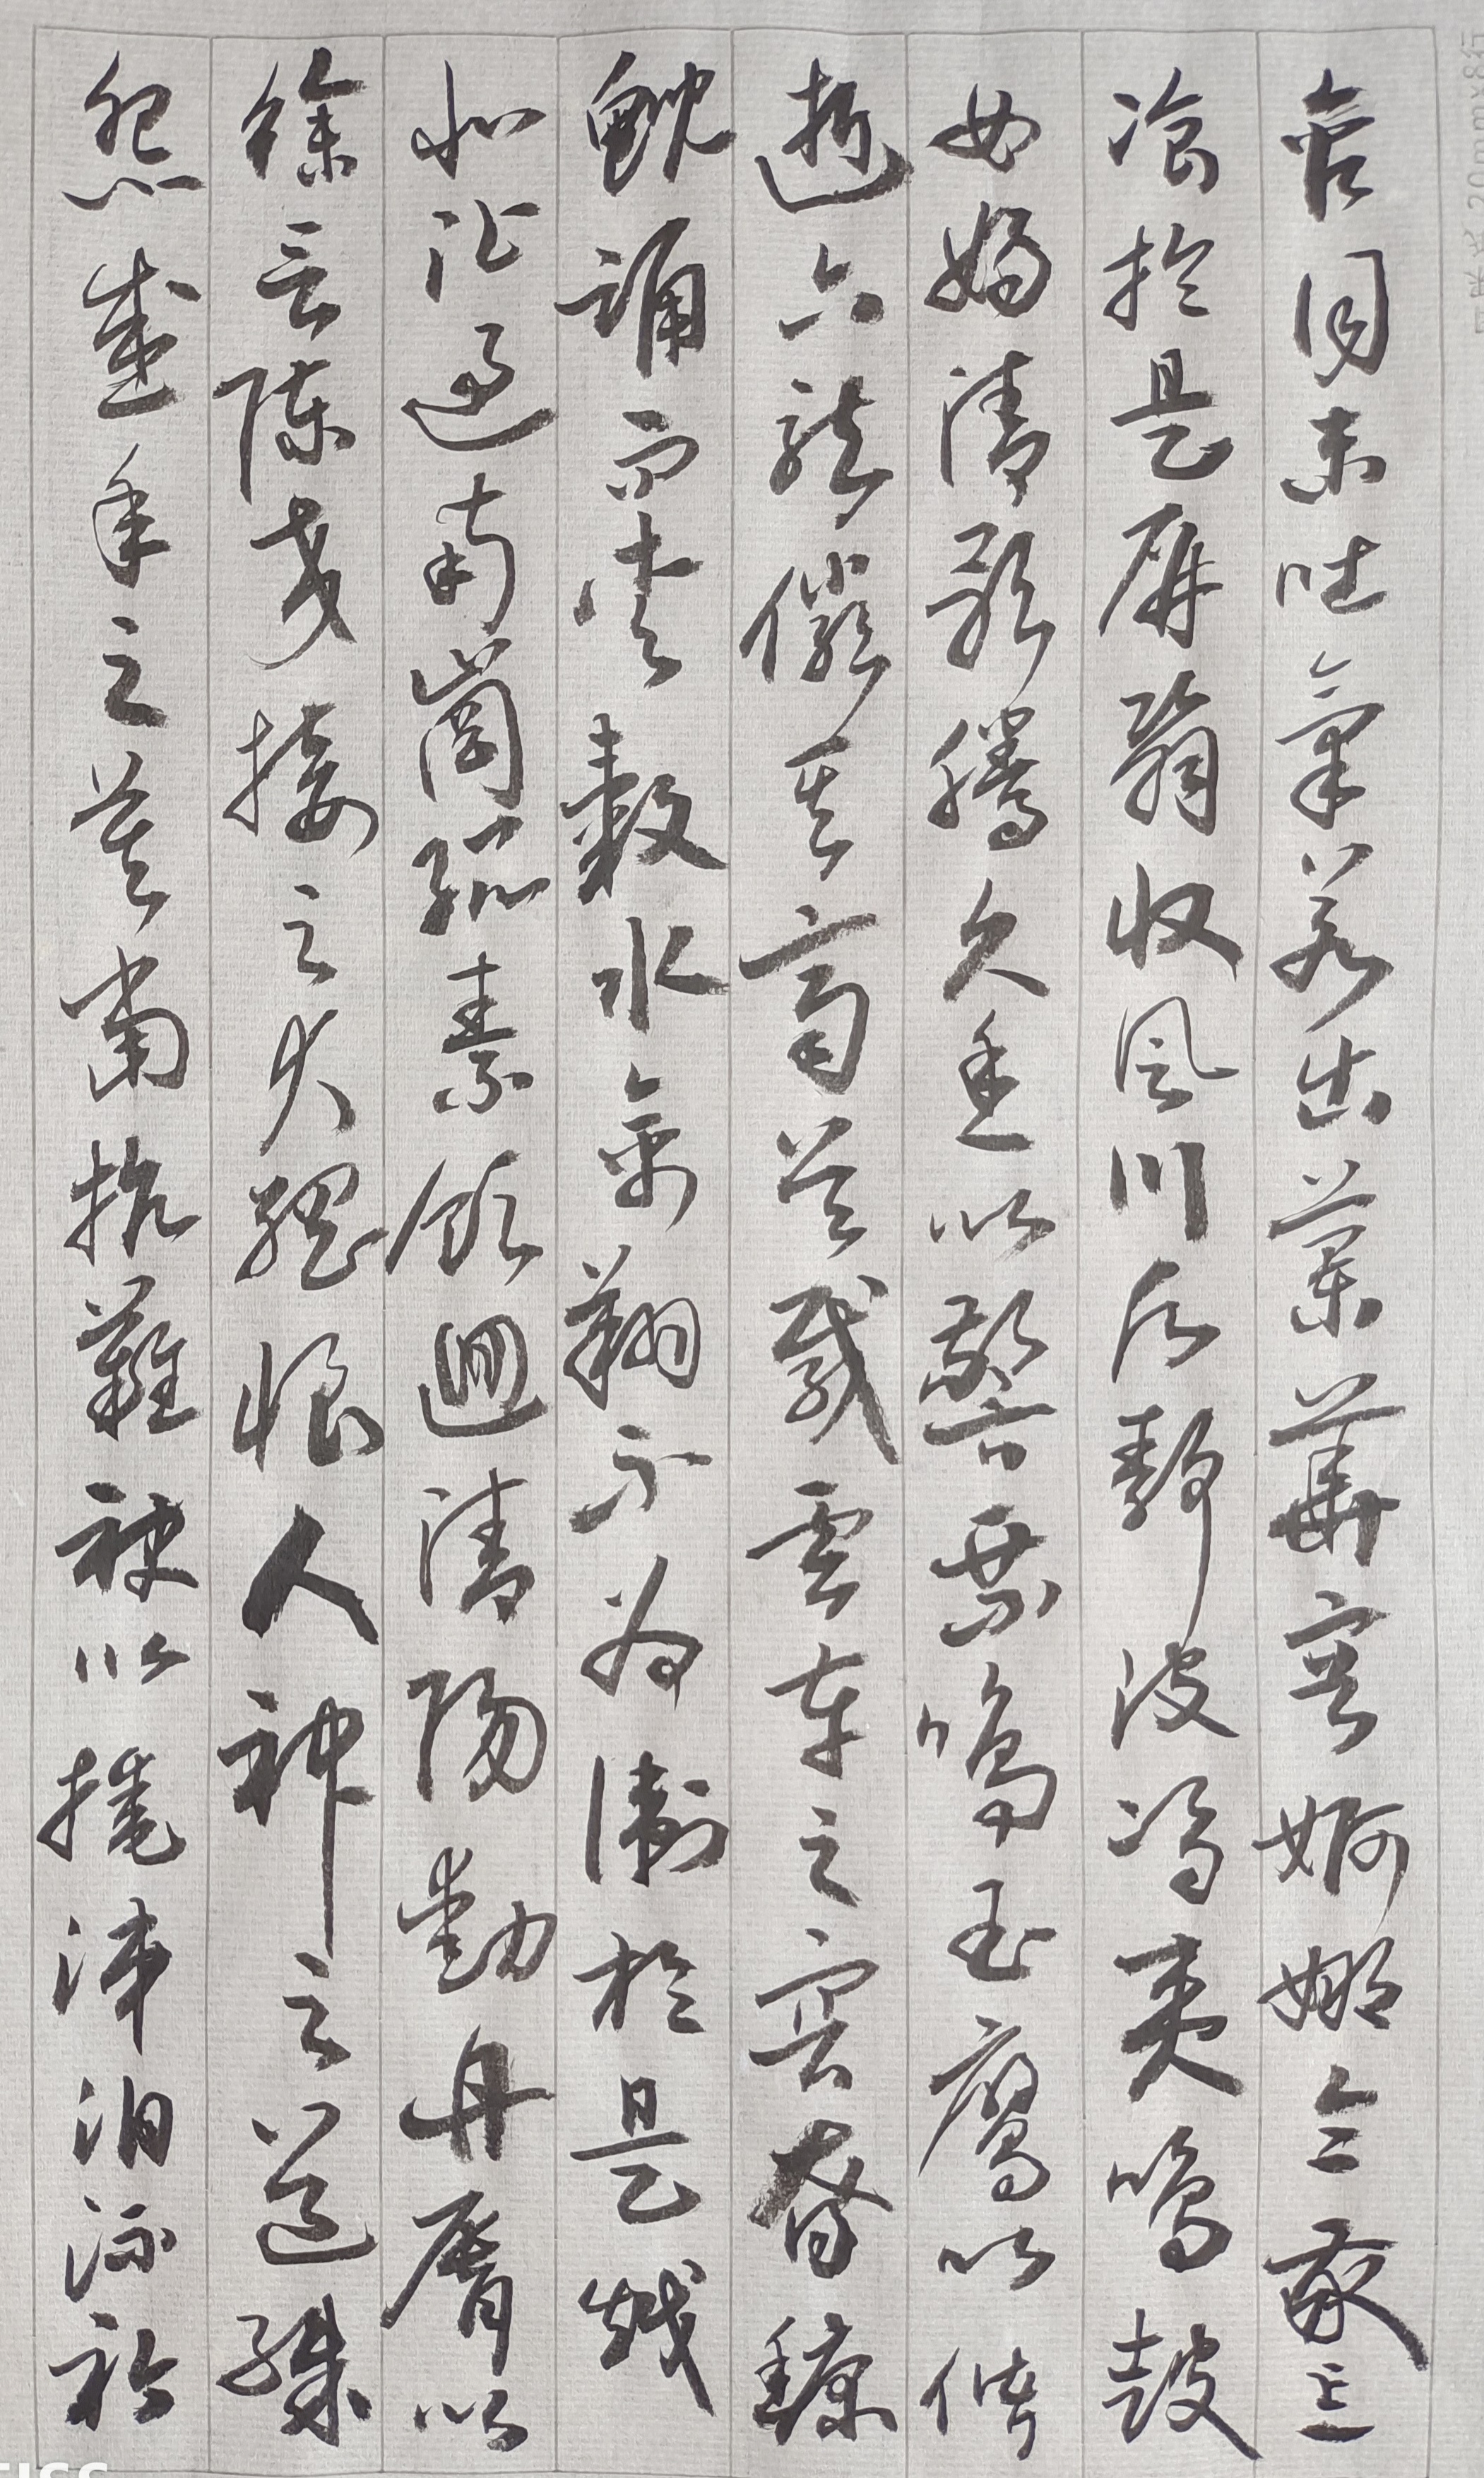 含詞未吐氣若幽蘭華容婀娜令我忘
飡於是屏翳收風川后靜波馮夷鳴鼓
女媧清歌騰文魚以警乘鳴玉鸞以偕
逝六龍儼其齊首載雲車之容裔鯨
鯢踊而夾轂水禽翔而為衛於是越
北沚過南崗紆素領迴清陽動丹脣以
徐言陳交接之大綱恨人神之道殊
怨盛年之莫當抗羅袂以掩涕泪流衿